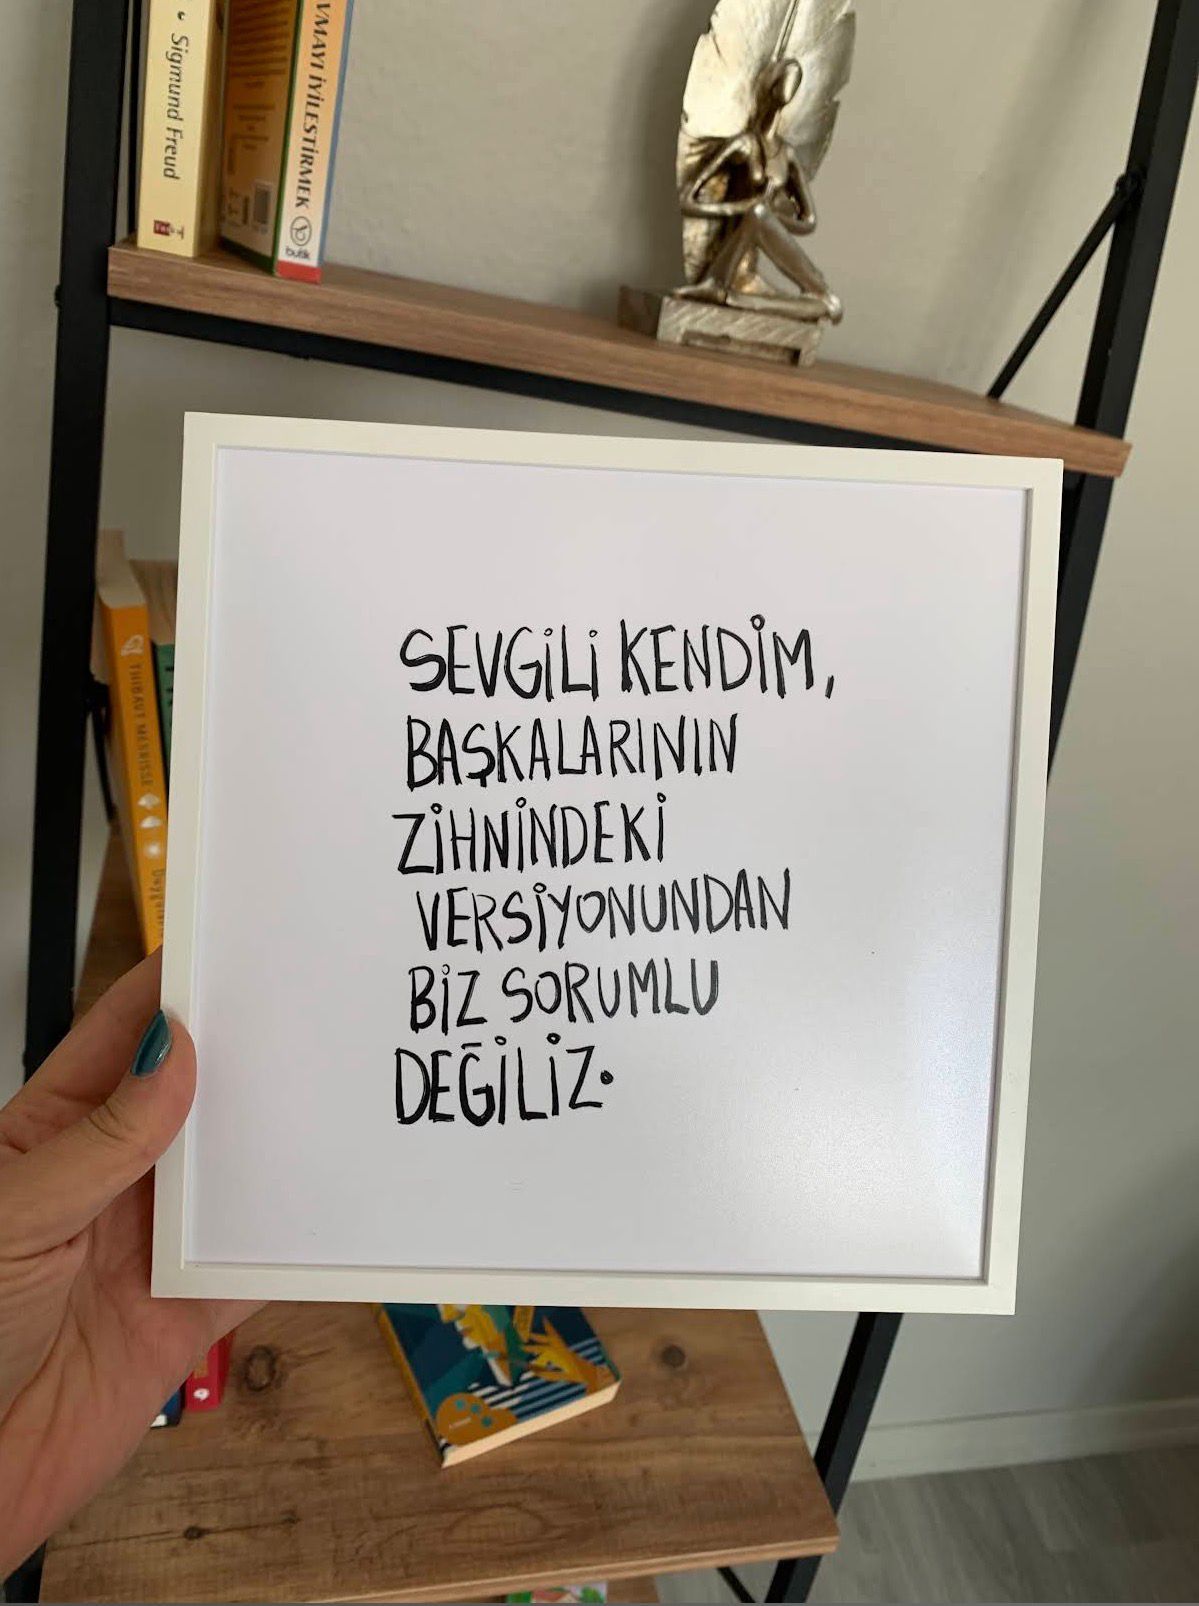 Sigmund Freud
VMAYI İYİLEŞTİRMEK
butik
SEVGİLİ KENDİM,
BAŞKALARININ
ZİHNİNDEKİ
VERSİYONUNDAN
BİZ SORUMLU
DEĞİLİZ.
THIBAUT MEURISSE